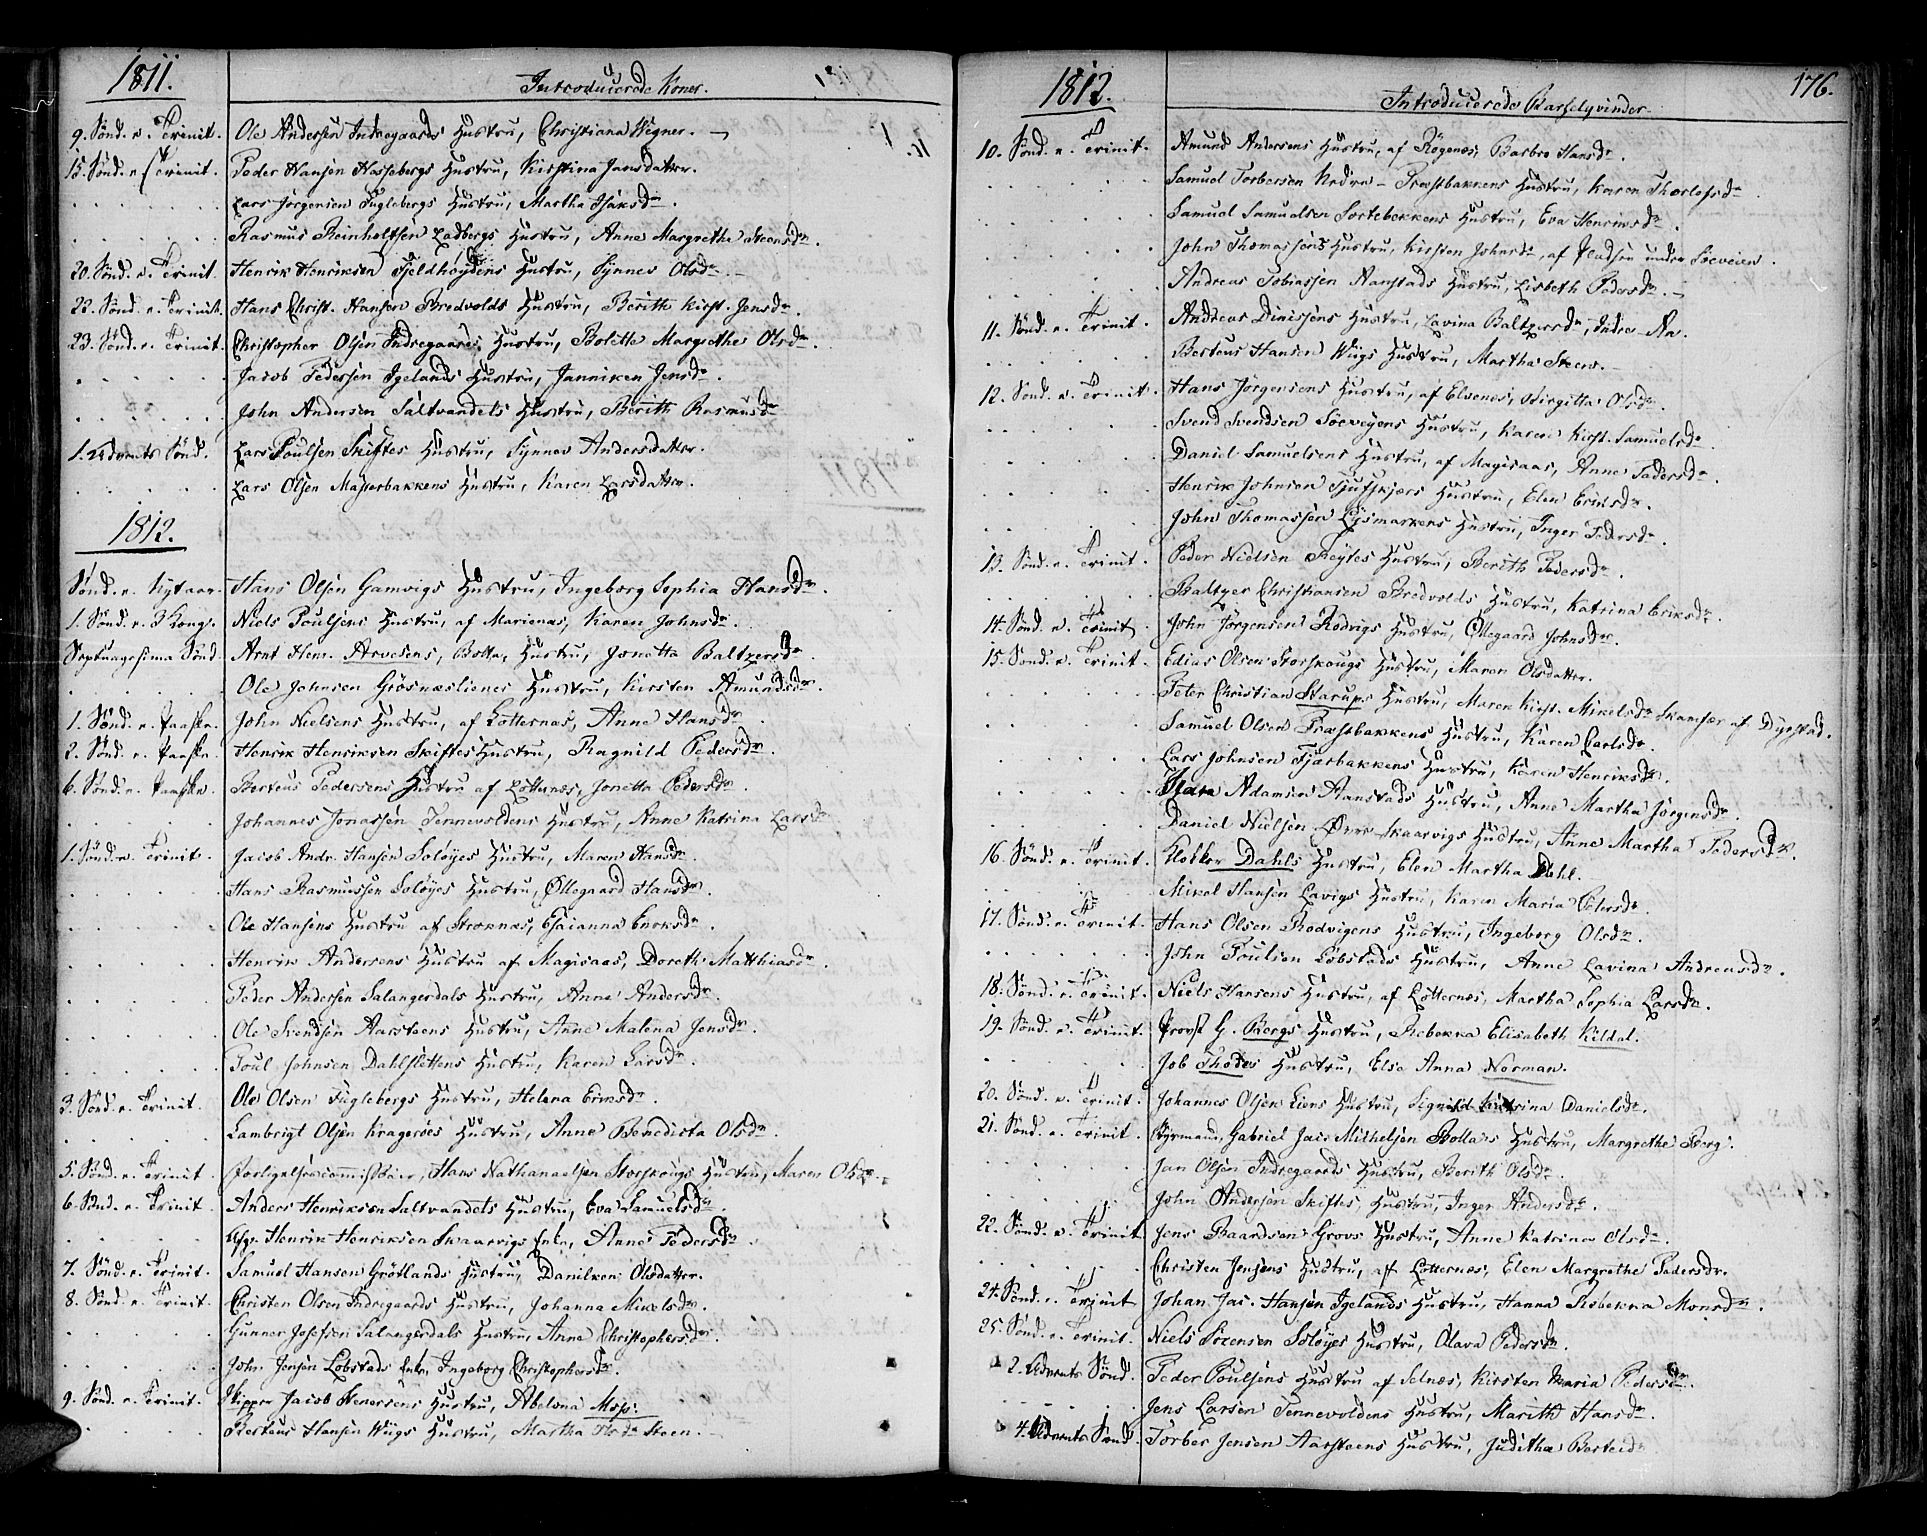 1811.
Introducerede Koner.
9. Sønd. e. Trinit. Ole Andersen Indregaards Hustru, Christiana Wigner.
15. Sønd. e. Trinit. Peder Hansen Hassebergs Hustru, Kirstina Jansdatter.
Lars Jørgensen Fuglebergs Hustru, Martha Isaksdr.
Rasmus Reinholtsen Ladbergs Hustru, Anne Margrethe Steensdr.
20. Sønd. e. Trinit. Henrik Henriksen Fjeldhøydens Hustru, Synnev Olsdr.
22. Sønd. e. Trinit. Hans Christ. Hansen Bredvolds Hustru, Berith Kirst. Jensdr.
23. Sønd. e. Trinit. Christopher Olsen Indregaards Hustru, Bolette Margrethe Olsdr.
Jacob Pedersen Igelands Hustru, Janniken Jensdr.
John Andersen Saltvandets Hustru, Berith Rasmusdr.
1. Advents Sønd. Lars Poulsen Skiftes Hustru, Synnev Andersdatter.
Lars Olsen Masterbakkens Hustru, Karen Larsdatter.
1812.
Sønd. e. Nytaar. Hans Olsen Gamvigs Hustru, Ingeborg Sophia Hansdr.
1. Sønd. e. 3 Kong. Niels Poulsens Hustru, af Marienæs, Karen Johnsdr.
Septuagesima Sønd. Arnt Henr. Arvesens, Bolla, Hustru, Jonetta Baltzersdr.
Ole Johnsen Grøsnæsliens Hustru, Kirsten Amundsdr.
1. Sønd. e. Paaske. John Nielsens Hustru, af Lotternæs, Anne Hansdr.
2. Sønd. e. Paaske. Henrik Henriksen Skiftes Hustru, Ragnild Pedersdr.
6. Sønd. e. Paaske. Berteus Pedersens Hustru af Lotternæs, Jonetta Pedersdr.
Johannes Jonassen Tennevoldens Hustru, Anne Katrina Larsdr.
1. Sønd. e. Trinit. Jacob Andr. Hansen Soløyes Hustru, Maren Hansdr.
Hans Rasmussen Soløyes Hustru, Ollegaard Hansdr.
Ole Hansens Hustru af Stroknæs, Esaianna Enoksdr.
Henrik Andersens Hustru af Magisaas, Doreth Matthiasdr.
Peder Andersen Salangerdals Hustru, Anne Andersdr.
Ole Svendsen Aarsteens Hustru, Anne Malena Jensdr.
Poul Johnsen Dahlslettens Hustru, Karen Larsdr.
3. Sønd. e. Trinit. Ole Olsen Fuglebergs Hustru, Helena Eriksdr.
Lambrigt Olsen Kragerøes Hustru, Anne Benedicta Olsdr.
5. Sønd. e. Trinit. Forligelsescommissair, Hans Nathanaelsen Storskougs Hustru, Maren Olsdr.
6. Sønd. e. Trinit. Anders Henriksen Saltvandets Hustru, Eva Samuelsdr.
Afg. Henrik Henriksen Skaarvigs Enke, Anne Pedersdr.
7. Sønd. e. Trinit. Samuel Hansen Grøtlands Hustru, Danilken Olsdatter.
8. Sønd. e. Trinit. Christen Olsen Indregaards Hustru, Johanna Mikelsdr.
Gunner Josefsen Salangerdals Hustru, Anne Christophersdr.
John Jensen Lobstads Enke, Ingeborg Christophersdr.
9. Sønd. e. Trinit. Skipper Jacob Stenersens Hustru, Abelona Moss.
Berteus Hansen Wiigs Hustru, Martha Steen.
1812.
Introducerede Barselqvinder.
176.
10. Sønd. e. Trinit. Amund Andersens Hustru, af Røgenæs, Barbro Hansdr.
Samuel Torbersen Nedre-Præstbakkens Hustru, Karen Thorlefsdr.
Samuel Samuelsen Sortebekkens Hustru, Eva Henriksdr.
John Thomassens Hustru, Kirsten Johnsdr, af Pladsen under Soeveien.
Andreas Tobiassen Aanstads Hustru, Lisbeth Pedersdr.
11. Sønd. e. Trinit. Andreas Dinisens Hustru, Lavina Baltzersdr, Indre-An.
Berteus Hansen Wiigs Hustru, Martha Steen.
12. Sønd. e. Trinit. Hans Jørgensens Hustru, af Elvenes, Birgitta Olsdr.
Svend Svendsen Soeveyens Hustru, Karen Kirst. Samuelsdr.
Daniel Samuelsens Hustru, af Magisaas, Anne Pedersdr.
Henrik Johnsen Tjufskjærs Hustru, Elen Eriksdr.
John Thomassen Lysmarkens Hustru, Inger Pedersdr.
13. Sønd. e. Trinit. Peder Nielsen Røytes Hustru, Berith Pedersdr.
Baltzer Christiansen Bredvolds Hustru, Katrina Eriksdr.
14. Sønd. e. Trinit. John Jørgensen Rodvigs Hustru, Ollegaard Johnsdr.
15. Sønd. e. Trinit. Edias Olsen Storskougs Hustru, Maren Olsdatter.
Peter Christian Starups Hustru, Maren Kirst. Mikelsdr Skamfær af Dyrstad.
Samuel Olsen Præstbakkens Hustru, Karen Carlsdr.
Lars Johnsen Tjærbakkens Hustru, Karen Henriksdr.
Adamsen Aanstads Hustru, Anne Martha Jørgensdr.
Daniel Nielsen Øvre Skaarvigs Hustru, Anne Martha Pedersdr.
16. Sønd. e. Trinit. Klokker Dahls Hustru, Elen Martha Dahl.
Mikel Hansen Lavigs Hustru, Karen Maria Pedersdr.
17. Sønd. e. Trinit. Hans Olsen Rodvigens Hustru, Ingeborg Olsdr.
John Poulsen Lobstads Hustru, Anne Lavina Andreasdr.
18. Sønd. e. Trinit. Niels Hansens Hustru, af Lotternæs, Martha Sophia Larsdr.
19. Sønd. e. Trinit. Provst G. Bergs Hustru, Rebekka Elisabeth Kildal.
Job Thodes Hustru, Else Anna Norman.
20. Sønd. e. Trinit. Johannes Olsen Liens Hustru, Signild Katrina Danielsdr.
21. Sønd. e. Trinit. Styrmand, Gabriel Jac. Mikkelsen Bollas Hustru, Margrethe Berg.
Jan Olsen Indregaards Hustru, Berith Olsdr.
John Andersen Skiftes, Hustru, Inger Andersdr.
22. Sønd. e. Trinit. Jens Baardsen Grovs Hustru, Anne Katrina Olsdr.
Christen Jensens Hustru, af Lotternæs, Elen Margrethe Pedersdr.
24. Sønd. e. Trinit. Johan Jac. Hansen Igelands Hustru, Hanna Rebekka Monsdr.
25. Sønd. e. Trinit. Niels Sørensen Soløyes Hustru, Olava Pedersdr.
2. Advents Sønd. Peder Poulsens Hustru af Selnæs, Kirsten Maria Pedersdr.
Jens Larsen Tennevoldens Hustru, Marith Hansdr.
4. Advents Sønd. Torber Jensen Aarsteens Hustru, Juditha Berteidr.